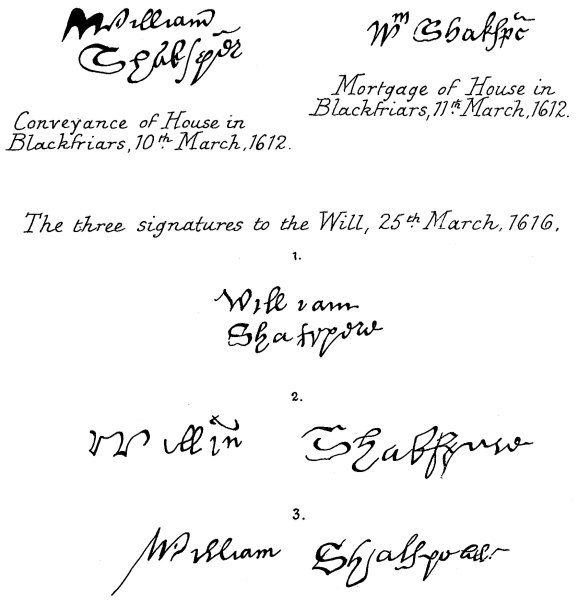 William
Wm Shakspē
Conveyance of House in
Blackfriars, 10th March, 1612.
Mortgage of House in
Blackfriars, 11th March, 1612.
The three signatures to the Will, 25th March, 1616.
1.
William
2.
3.
William